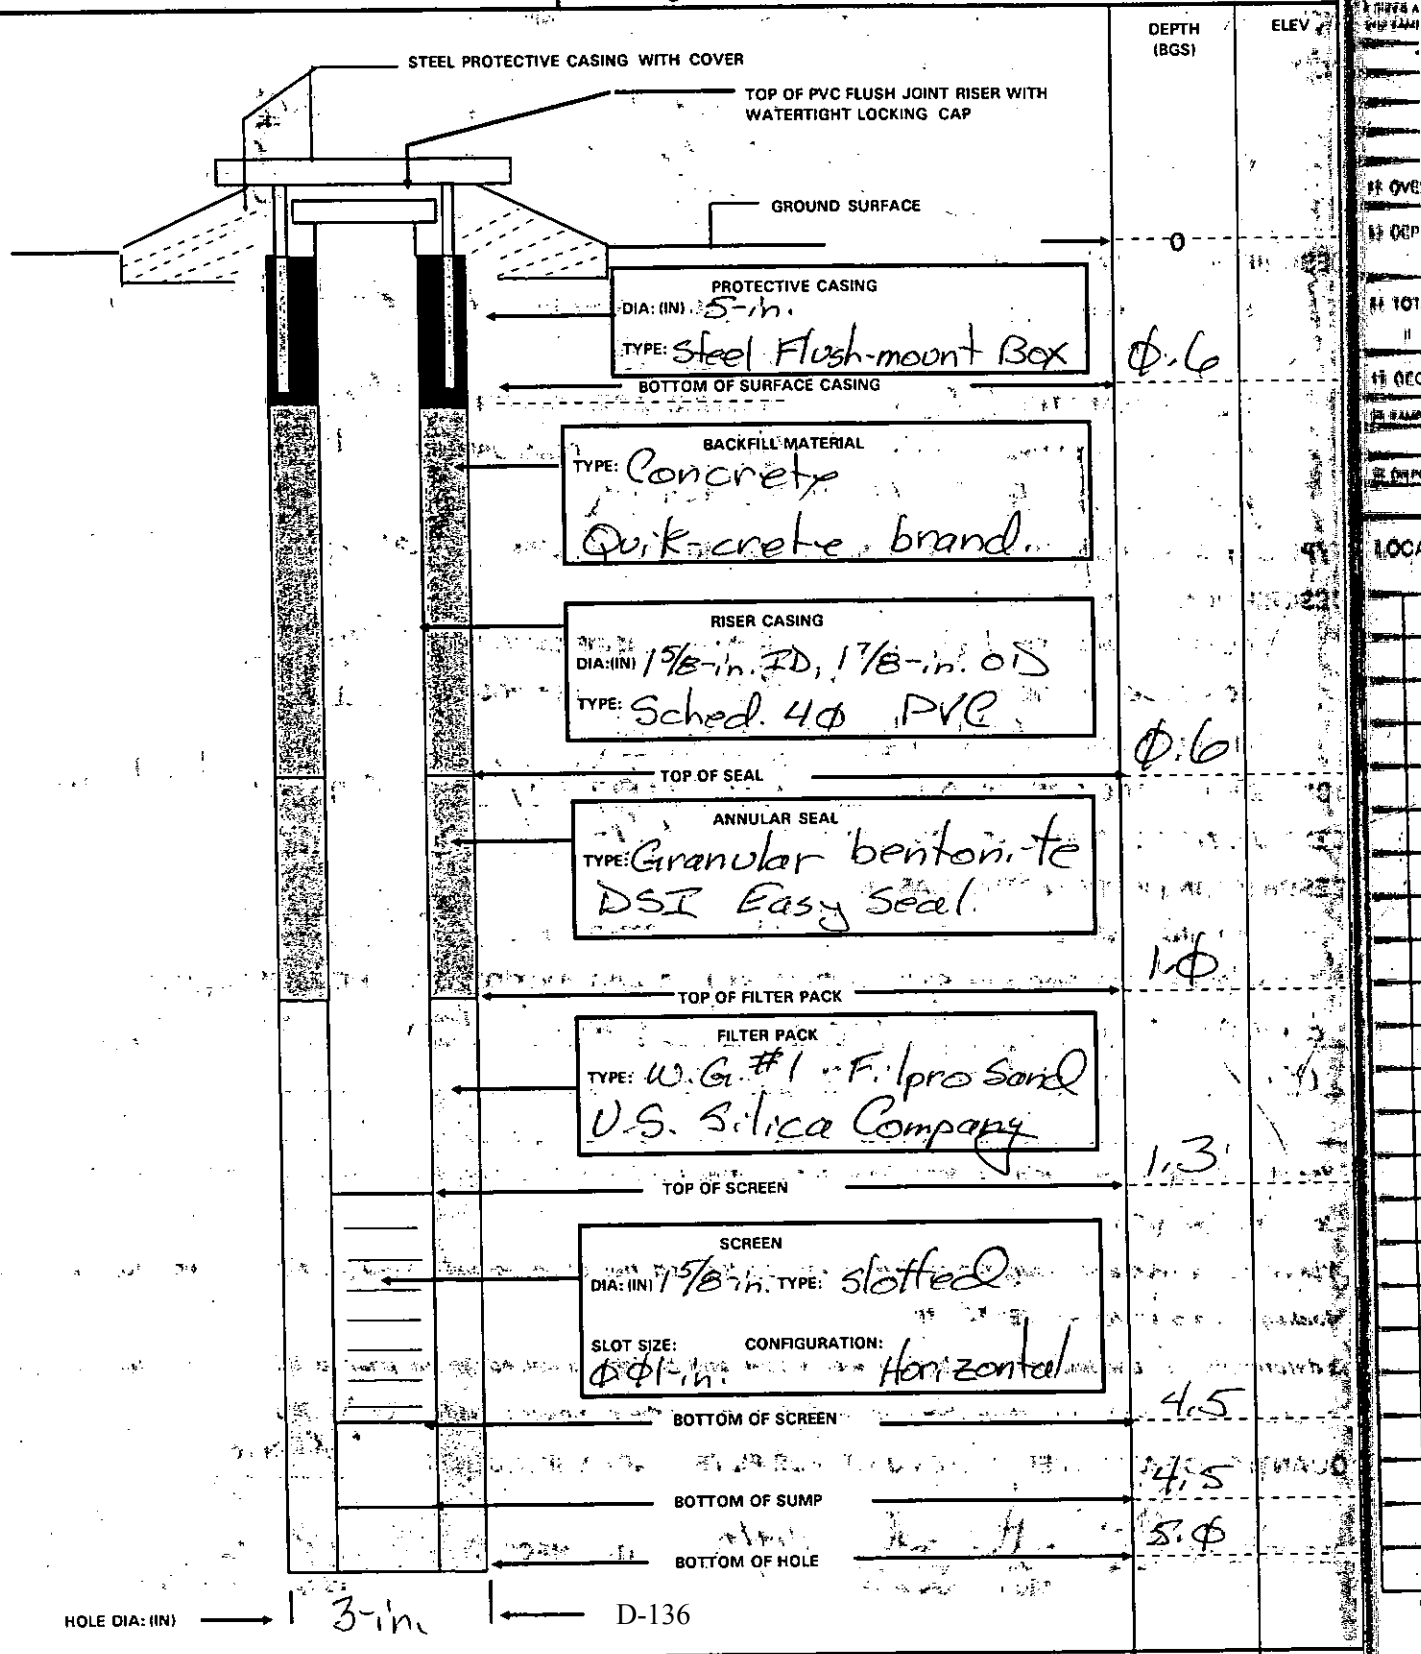 DEPTH
(BGS)
ELEV
STEEL PROTECTIVE CASING WITH COVER
TOP OF PVC FLUSH JOINT RISER WITH
WATERTIGHT LOCKING CAP
GROUND SURFACE
0
PROTECTIVE CASING
DIA: (IN) 5-in.
TYPE: Steel Flush-mount Box
0.6
BOTTOM OF SURFACE CASING
BACKFILL MATERIAL
TYPE: Concrete
Quik-crete brand.
RISER CASING
DIA:(IN) 1 5/8-in. ID, 1 7/8-in. OD
TYPE: Sched. 40 PVC
0.6
TOP OF SEAL
ANNULAR SEAL
TYPE: Granular bentonite
DSI Easy Seal.
1.0
TOP OF FILTER PACK
FILTER PACK
TYPE: W.G. #1 Filpro Sand
U.S. Silica Company
1.3
TOP OF SCREEN
SCREEN
DIA: (IN) 1 5/8-in. TYPE: slotted
SLOT SIZE: CONFIGURATION:
0.01-in. Horizontal
4.5
BOTTOM OF SCREEN
4.5
BOTTOM OF SUMP
5.0
BOTTOM OF HOLE
HOLE DIA: (IN) 3-in.
D-136